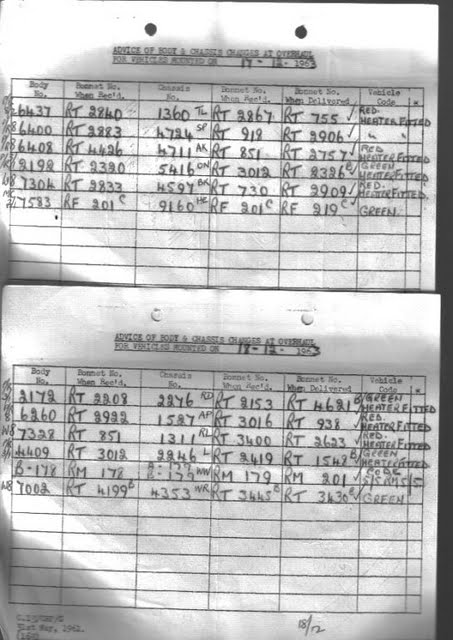 ADVICE OF BODY & CHASSIS CHANGES AT OVERHAUL
FOR VEHICLES MOUNTED ON 17-12-1963
Body No. Bonnet No. When Rec'd. Chassis No. Bonnet No. When Rec'd. Bonnet No. When Delivered Vehicle Code *
6437 RT 2840 1360 TL RT 2867 RT 755 ✓ RED. HEATER FITTED
6400 RT 2883 4724 SP RT 918 RT 2906 ✓ " "
6408 RT 4426 4711 AK RT 851 RT 2757 ✓ RED HEATER FITTED
2198 RT 2320 5416 ON RT 3012 RT 2326 B ✓ GREEN HEATER FITTED
7304 RT 2833 4597 BK RT 730 RT 2909 ✓ RED. HEATER FITTED.
7583 RF 201 C 9160 HE RF 201 C RF 219 C ✓ GREEN.
ADVICE OF BODY & CHASSIS CHANGES AT OVERHAUL
FOR VEHICLES MOUNTED ON 18-12-1963
Body No. Bonnet No. When Rec'd. Chassis No. Bonnet No. When Rec'd. Bonnet No. When Delivered Vehicle Code *
2172 RT 2208 2276 RD RT 2153 RT 4621 B ✓ GREEN HEATER FITTED
6260 RT 2922 1527 AP RT 3016 RT 938 ✓ RED. HEATER FITTED
7328 RT 851 1311 RL RT 3400 RT 2623 ✓ RED. HEATER FITTED
4409 RT 3012 2246 L RT 2419 RT 1548 B ✓ GREEN HEATER FITTED
B-178 RM 178 B-179 WW RM 179 RM 201 ✓ CODE
7002 RT 4199 B 4353 WR RT 3445 B RT 3430 B ✓ GREEN
31st May, 1962.
18/12